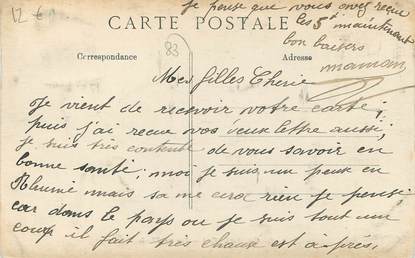 je pense que vous avez reçu
les 5f maintenant
12 €
CARTE POSTALE
bon baisers
83
Correspondance
Adresse
maman
Mes filles Cherie
Je vient de recevoir votre carte ;
puis j'ai recue vos deux lettre aussi,
je suis très contente de vous savoir en
bonne santé ; moi je suis un peux en
Rhumé mais sa me cera rien je pense
car dams le pays ou je suis tout un
coup il fait très chaux est a-près,